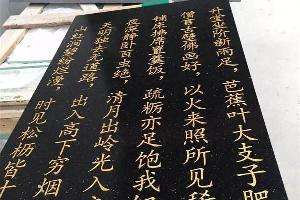 升堂坐阶新雨足，芭蕉叶大支子肥
僧言古壁佛画好，以火来照所见稀
铺床拂席置羹饭，疏粝亦足饱我
夜深静卧百虫绝，清月出岭光入
天明独去无道路，出入高下穷烟
山红涧碧纷烂漫，时见松枥皆十